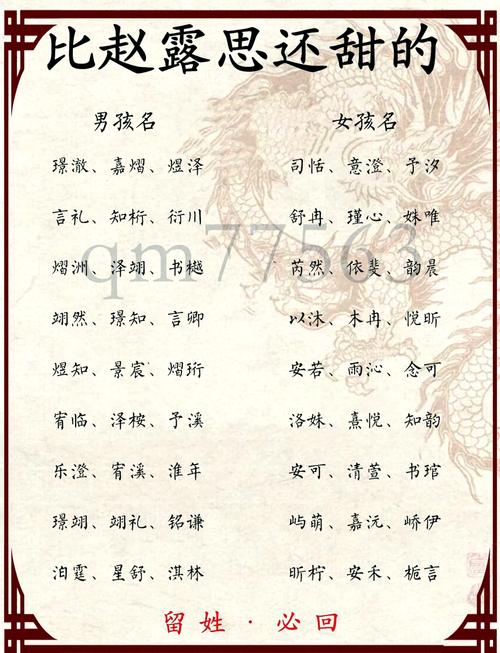 比赵露思还甜的
男孩名 女孩名
璟澈、嘉熠、煜泽 司恬、意澄、予汐
言礼、知析、衍川 舒冉、瑾心、姝唯
qm77563
熠洲、泽翊、书樾 芮然、依斐、韵晨
翊然、璟知、言卿 以沐、木冉、悦昕
煜知、景宸、熠珩 安若、雨沁、念可
宥临、泽桉、予溪 洛姝、熹悦、知韵
乐澄、宥溪、淮年 安可、清萱、书琯
璟翊、翊礼、铭谦 屿萌、嘉沅、峤伊
洎霆、星舒、淇林 昕柠、安禾、栀言
留姓·必回